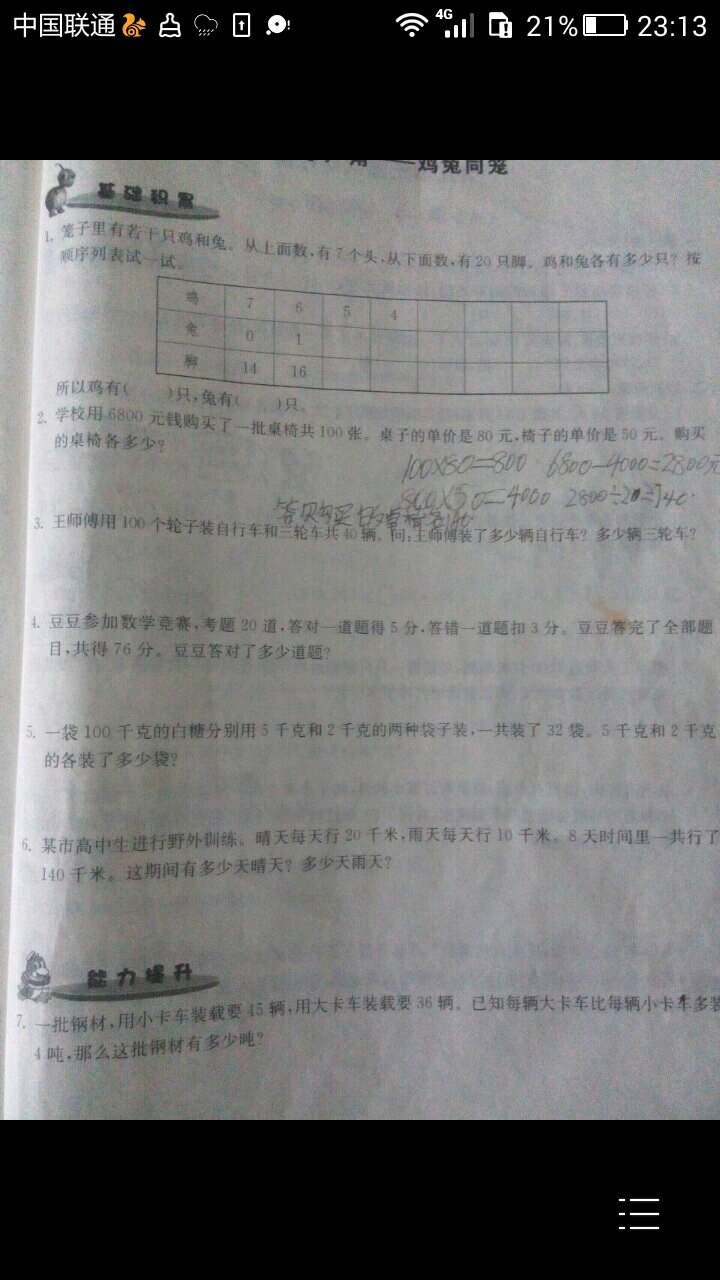 中国联通 4G 21% 23:13
鸡兔同笼
基础积累
1. 笼子里有若干只鸡和兔。从上面数,有7个头,从下面数,有20只脚。鸡和兔各有多少只?按
顺序列表试一试。
鸡 7 6 5 4
兔 0 1
脚 14 16
所以鸡有( )只,兔有( )只。
2. 学校用6800元钱购买了一批桌椅共100张。桌子的单价是80元,椅子的单价是50元。购买
的桌椅各多少?
100×80=800 6800-4000=2800元
800×50=4000 2800÷20=140
3. 王师傅用100个轮子装自行车和三轮车共40辆。问:王师傅装了多少辆自行车?多少辆三轮车?
4. 豆豆参加数学竞赛,考题20道,答对一道题得5分,答错一道题扣3分。豆豆答完了全部题
目,共得76分。豆豆答对了多少道题?
5. 一袋100千克的白糖分别用5千克和2千克的两种袋子装,一共装了32袋。5千克和2千克
的各装了多少袋?
6. 某市高中生进行野外训练。晴天每天行20千米,雨天每天行10千米。8天时间里一共行了
140千米。这期间有多少天晴天?多少天雨天?
能力提升
7. 一批钢材,用小卡车装载要45辆,用大卡车装载要36辆。已知每辆大卡车比每辆小卡车多装
4吨,那么这批钢材有多少吨?